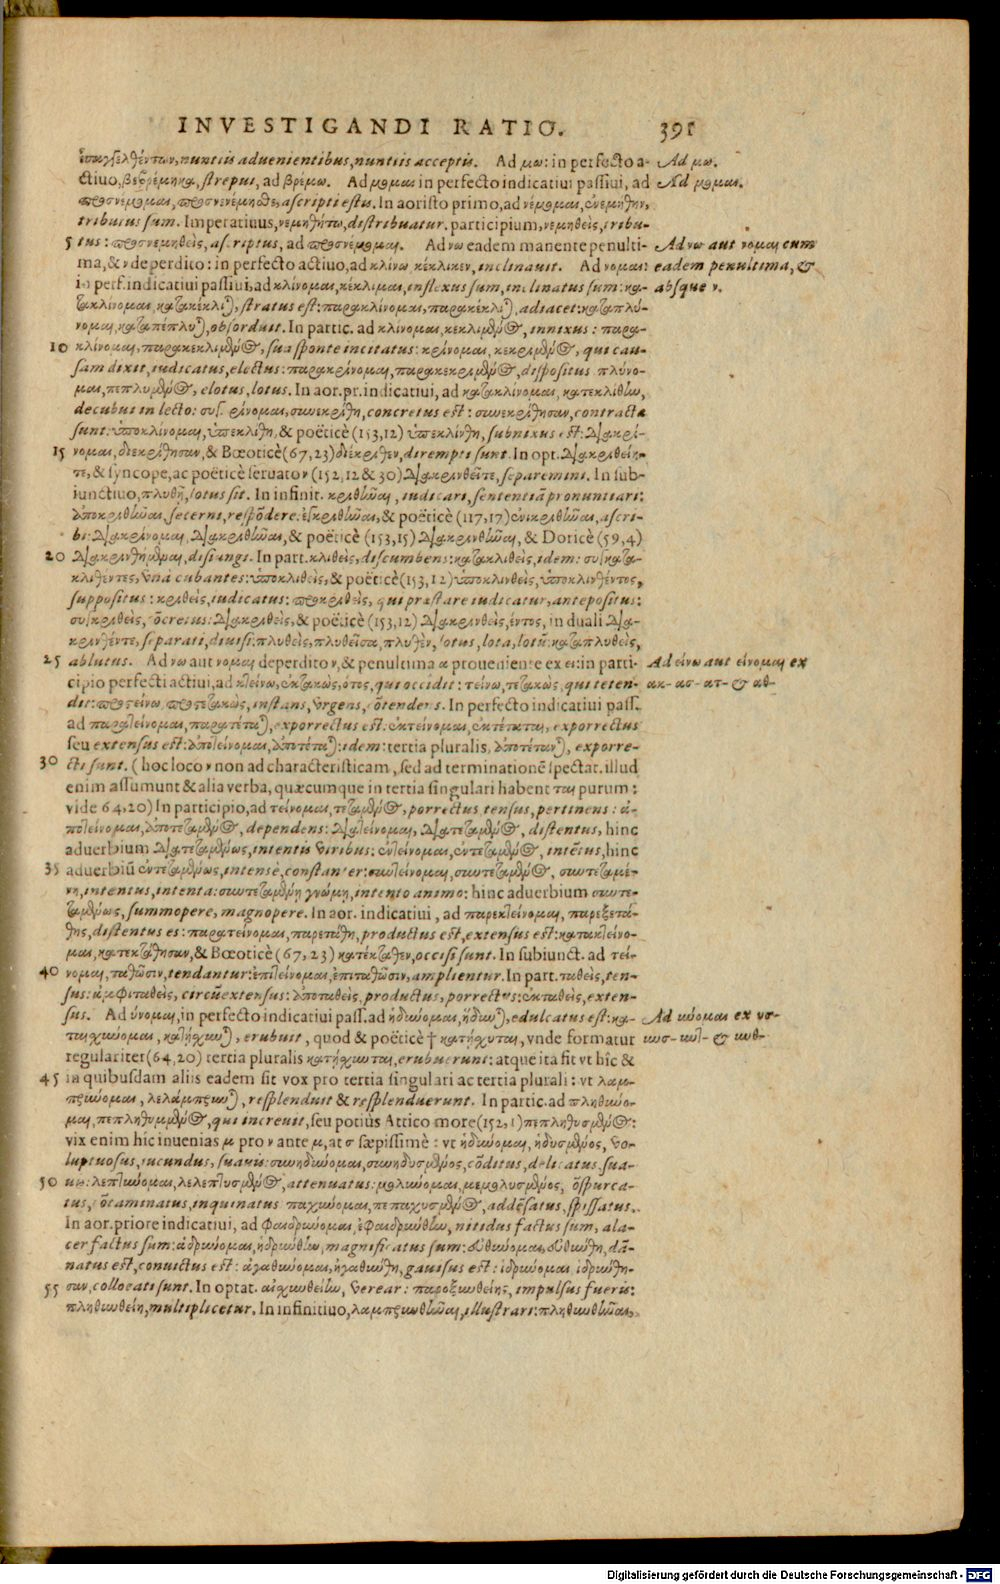 INVESTIGANDI RATIO. 391
ἐπαγγελθέντων, nuntiis aduenientibus, nuntiis acceptis. Ad μω: in perfecto a- Ad μω.
ctiuo, βεβρέμηκα, strepui, ad βρέμω. Ad μομαι in perfecto indicatiui passiui, ad Ad μομαι.
προσνέμομαι, προσνενέμησθε, ascripti estis. In aoristo primo, ad νέμομαι, ἐνεμήθην,
tributus sum. Imperatiuus, νεμηθήτω, distribuatur. participium, νεμηθεὶς, tribu-
5 tus: προσνεμηθεὶς, ascriptus, ad προσνέμομαι. Ad νω eadem manente penulti- Ad νω aut νομαι cum
ma, & ν deperdito: in perfecto actiuo, ad κλίνω κέκλικεν, inclinauit. Ad νομαι: eadem penultima, &
in perf. indicatiui passiui, ad κλίνομαι, κέκλιμαι, inflexus sum, inclinatus sum: κα- absque ν.
τακλίνομαι, κατακέκλιται, stratus est: παρακλίνομαι, παρακέκλιται, adiacet: καταπλύ-
νομαι, καταπέπλυται, obsorduit. In partic. ad κλίνομαι, κεκλιμένος, innixus: παρα-
10 κλίνομαι, παρακεκλιμένος, sua sponte incitatus: κρίνομαι, κεκριμένος, qui cau-
sam dixit, iudicatus, electus: παρακρίνομαι, παρακεκριμένος, dispositus πλύνο-
μαι, πεπλυμένος, elotus, lotus. In aor. pr. indicatiui, ad κατακλίνομαι, κατεκλίθην,
decubui in lecto: συγκρίνομαι, συνεκρίθη, concretus est: συνεκρίθησαν, contracta
sunt: ὑποκλίνομαι, ὑπεκλίθη, & poëticè (153,12) ὑπεκλίνθη, subnixus est: διακρί-
15 νομαι, διεκρίθησαν, & Bœoticè (67,23) διέκριθεν, dirempti sunt. In opt. διακριθείη-
τε, & syncope, ac poëticè seruato ν (152,12 & 30) διακρινθεῖτε, separemini. In sub-
iunctiuo, πλυθῇ, lotus sit. In infinit. κριθῆναι, iudicari, sententiã pronuntiari:
ἀποκριθῆναι, secerni, respõdere: ἐγκριθῆναι, & poëticè (117,17) ἐνικριθῆναι, ascri-
bi: διακρίνομαι, διακριθῆναι, & poëticè (153,15) διακρινθῆναι, & Doricè (59,4)
20 διακρινθήμεναι, disiungi. In part. κλιθεὶς, discumbens: κατακλιθεὶς, idem: συγκατα-
κλιθέντες, vnà cubantes: ὑποκλιθεὶς, & poëticè (153,12) ὑποκλινθεὶς, ὑποκλινθέντος,
suppositus: κριθεὶς, iudicatus: προκριθεὶς, qui præstare iudicatur, antepositus:
συγκριθεὶς, cõcretus: διακριθεὶς, & poëticè (153,12) διακρινθεὶς, έντος, in duali δια-
κρινθέντε, separati, diuisi: πλυθεὶς, πλυθεῖσα, πλυθὲν, lotus, lota, lotũ: καταπλυθεὶς,
25 ablutus. Ad νω aut νομαι deperdito ν, & penultima α proueniente ex ει: in parti- Ad είνω aut είνομαι ex
cipio perfecti actiui, ad κτείνω, ἐκτακὼς, ότος, qui occidit: τείνω, τετακὼς, qui teten- ακ- ασ- ατ- & αθ-
dit: προστείνω, προστετακὼς, instans, vrgens, cõtendens. In perfecto indicatiui pass.
ad παρατείνομαι, παρατέταται, exporrectus est: ἐκτείνομαι, ἐκτέταται, exporrectus
seu extensus est: ἀποτείνομαι, ἀποτέταται: idem: tertia pluralis, ἀποτέτανται, exporre-
30 cti sunt. (hoc loco ν non ad characteristicam, sed ad terminationẽ spectat. illud
enim assumunt & alia verba, quæcumque in tertia singulari habent ται purum:
vide 64,20) In participio, ad τείνομαι, τεταμένος, porrectus tensus, pertinens: ἀ-
ποτείνομαι, ἀποτεταμένος, dependens: διατείνομαι, διατεταμένος, distentus, hinc
aduerbium διατεταμένως, intentis viribus: ἐντείνομαι, ἐντεταμένος, intẽtus, hinc
35 aduerbiũ ἐντεταμένως, intensè, constanter: συντείνομαι, συντεταμένος, συντεταμέ-
νη, intentus, intenta: συντεταμένῃ γνώμῃ, intento animo: hinc aduerbium συντε-
ταμένως, summopere, magnopere. In aor. indicatiui, ad παρεκτείνομαι, παρεξετά-
θης, distentus es: παρατείνομαι, παρετάθη, productus est, extensus est: κατακτείνο-
μαι, κατεκτάθησαν, & Bœoticè (67,23) κατέκταθεν, occisi sunt. In subiunct. ad τεί-
40 νομαι, ταθῶσιν, tendantur: ἐπιτείνομαι, ἐπιταθῶσιν, amplientur. In part. ταθεὶς, ten-
sus: ἀμφιταθεὶς, circũextensus: ἀποταθεὶς, productus, porrectus: ἐκταθεὶς, exten-
sus. Ad ύνομαι, in perfecto indicatiui pass. ad ἡδύνομαι, ἥδυνται, edulcatus est: κα- Ad ύνομαι ex υσ-
ταισχύνομαι, κατῄσχυνται, erubuit, quod & poëticè † κατῄσχυται, vnde formatur υνσ- υντ- & υνθ-
regulariter (64,20) tertia pluralis κατῄσχυνται, erubuerunt: atque ita fit vt hîc &
45 in quibusdam aliis eadem sit vox pro tertia singulari ac tertia plurali: vt λαμ-
πρύνομαι, λελάμπρυνται, resplenduit & resplenduerunt. In partic. ad πληθύνο-
μαι, πεπληθυμμένος, qui increuit, seu potiùs Attico more (152,1) πεπληθυσμένος:
vix enim hic inuenias μ pro ν ante μ, at σ sæpissimè: vt ἡδύνομαι, ἡδυσμένος, vo-
luptuosus, iucundus, suauis: συνηδύνομαι, συνηδυσμένος, cõditus, delicatus, sua-
50 uis: λεπτύνομαι, λελεπτυσμένος, attenuatus: μολύνομαι, μεμολυσμένος, cõspurca-
tus, cõtaminatus, inquinatus παχύνομαι, πεπαχυσμένος, addẽsatus, spissatus.
In aor. priore indicatiui, ad φαιδρύνομαι, ἐφαιδρύνθην, nitidus factus sum, ala-
cer factus sum: ἁδρύνομαι, ἡδρύνθην, magnificatus sum: εὐθύνομαι, εὐθύνθη, dã-
natus est, conuictus est: ἀγαθύνομαι, ἠγαθύνθη, gauisus est: ἱδρύνομαι, ἱδρύνθη-
55 σαν, collocati sunt. In optat. αἰσχυνθείην, verear: παροξυνθείης, impulsus fueris:
πληθυνθείη, multiplicetur. In infinitiuo, λαμπρυνθῆναι, illustrari: πληθυνθῆναι,
Digitalisierung gefördert durch die Deutsche Forschungsgemeinschaft - DFG